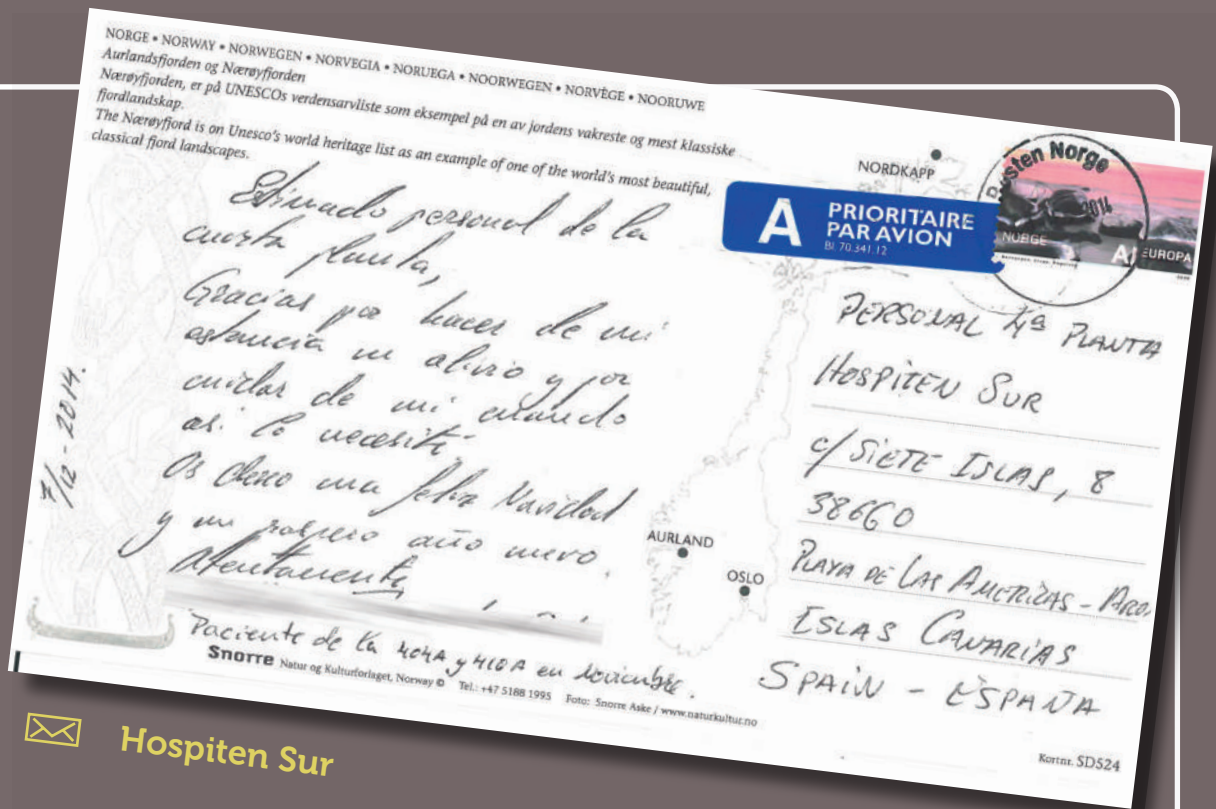 NORGE • NORWAY • NORWEGEN • NORVEGIA • NORUEGA • NOORWEGEN • NORVÈGE • NOORUWE
Aurlandsfjorden og Nærøyfjorden
Nærøyfjorden, er på UNESCOs verdensarvliste som eksempel på en av jordens vakreste og mest klassiske
fjordlandskap.
The Nærøyfjord is on Unesco's world heritage list as an example of one of the world's most beautiful,
classical fjord landscapes.
Estimado personal de la
cuarta planta,
Gracias por hacer de mi
estancia un alivio y por
cuidar de mi cuando
asi lo necesité
Os deseo una feliz Navidad
y un prospero año nuevo.
Atentamente
Paciente de la 404A y 410A en noviembre.
7/12-2014.
Snorre Natur og Kulturforlaget, Norway © Tel.: +47 5188 1995 Foto: Snorre Aske / www.naturkultur.no
NORDKAPP
AURLAND
OSLO
A PRIORITAIRE
PAR AVION
Bl. 70.341.12
Posten Norge
2014
NORGE
A EUROPA
PERSONAL 4ª PLANTA
HOSPITEN SUR
c/ SIETE ISLAS, 8
38660
PLAYA DE LAS AMERICAS -
ISLAS CANARIAS
SPAIN - ESPAÑA
Kortnr. SD524
Hospiten Sur